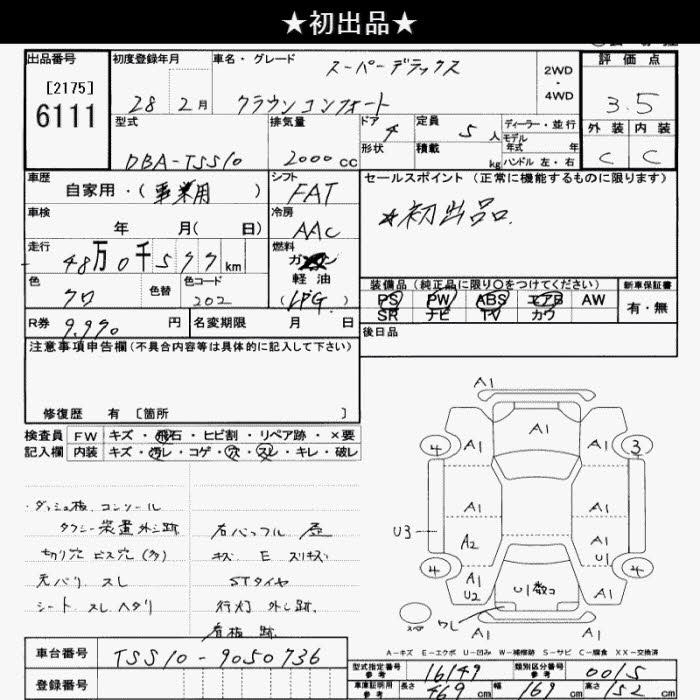 ★初出品★
出品番号
[2175]
6111
初度登録年月
28年 2月
車名・グレード
スーパーデラックス
クラウンコンフォート
2WD
・
4WD
評価点
3.5
外装 内装
C C
型式
DBA-TSS10
排気量
2000cc
ドア 4
形状
定員 5人
積載 kg
ディーラー・並行
モデル
年式 年
ハンドル 左・右
車歴
自家用・(事業用)
シフト
FAT
セールスポイント(正常に機能するものに限ります)
★初出品。
車検
年 月( 日)
冷房
AAC
走行
48万0千577km
燃料
ガソリン
軽油
(LPG)
色
クロ
色替
色コード
202
装備品(純正品に限り○をつけてください)
PS PW ABS エアB AW
SR ナビ TV カワ
新車保証書
有・無
R券 9,990円
名変期限 月 日
後日品
注意事項申告欄(不具合内容等は具体的に記入して下さい)
修復歴 有 〔箇所 〕
検査員 FW キズ・飛石・ヒビ割・リペア跡・×要
記入欄 内装 キズ・汚レ・コゲ・穴・スレ・キレ・破レ
・ダッシュ板、コンソール
タクシー装置外シ跡
切り穴 ビス穴(多)
天バリ スレ
シート スレ ヘタリ
右バッフル
キズ E スリキズ
STタイヤ
行灯 外シ跡.
看板 跡
A1
A1
4 A1 A1 3
A1 A1
U3 A2 A1
U1
4 A1 U2 U1数コ A1 4
スペア ワレ A1
A-キズ E-エクボ U-凹み W-補修跡 S-サビ C-腐食 XX-交換済
車台番号
TSS10-9050736
登録番号
型式指定番号
参考
16149
類別区分番号
参考
0015
車庫証明用
参考
長さ 469cm 幅 169cm 高さ 152cm